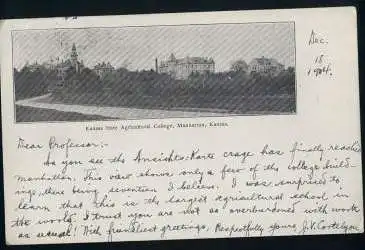 Dec.
18
1904.
Kansas State Agricultural College, Manhattan, Kansas.
Dear Professor:-
As you see the Ansichts-Karte craze has finally reached
Manhattan. This view shows only a few of the college build-
ings, there being seventeen I believe. I was surprised to
learn that this is the largest agricultural school in
the world. I trust you are not as overburdened with work
as usual! With greetings. Respectfully yours, J.V. Cortelyou